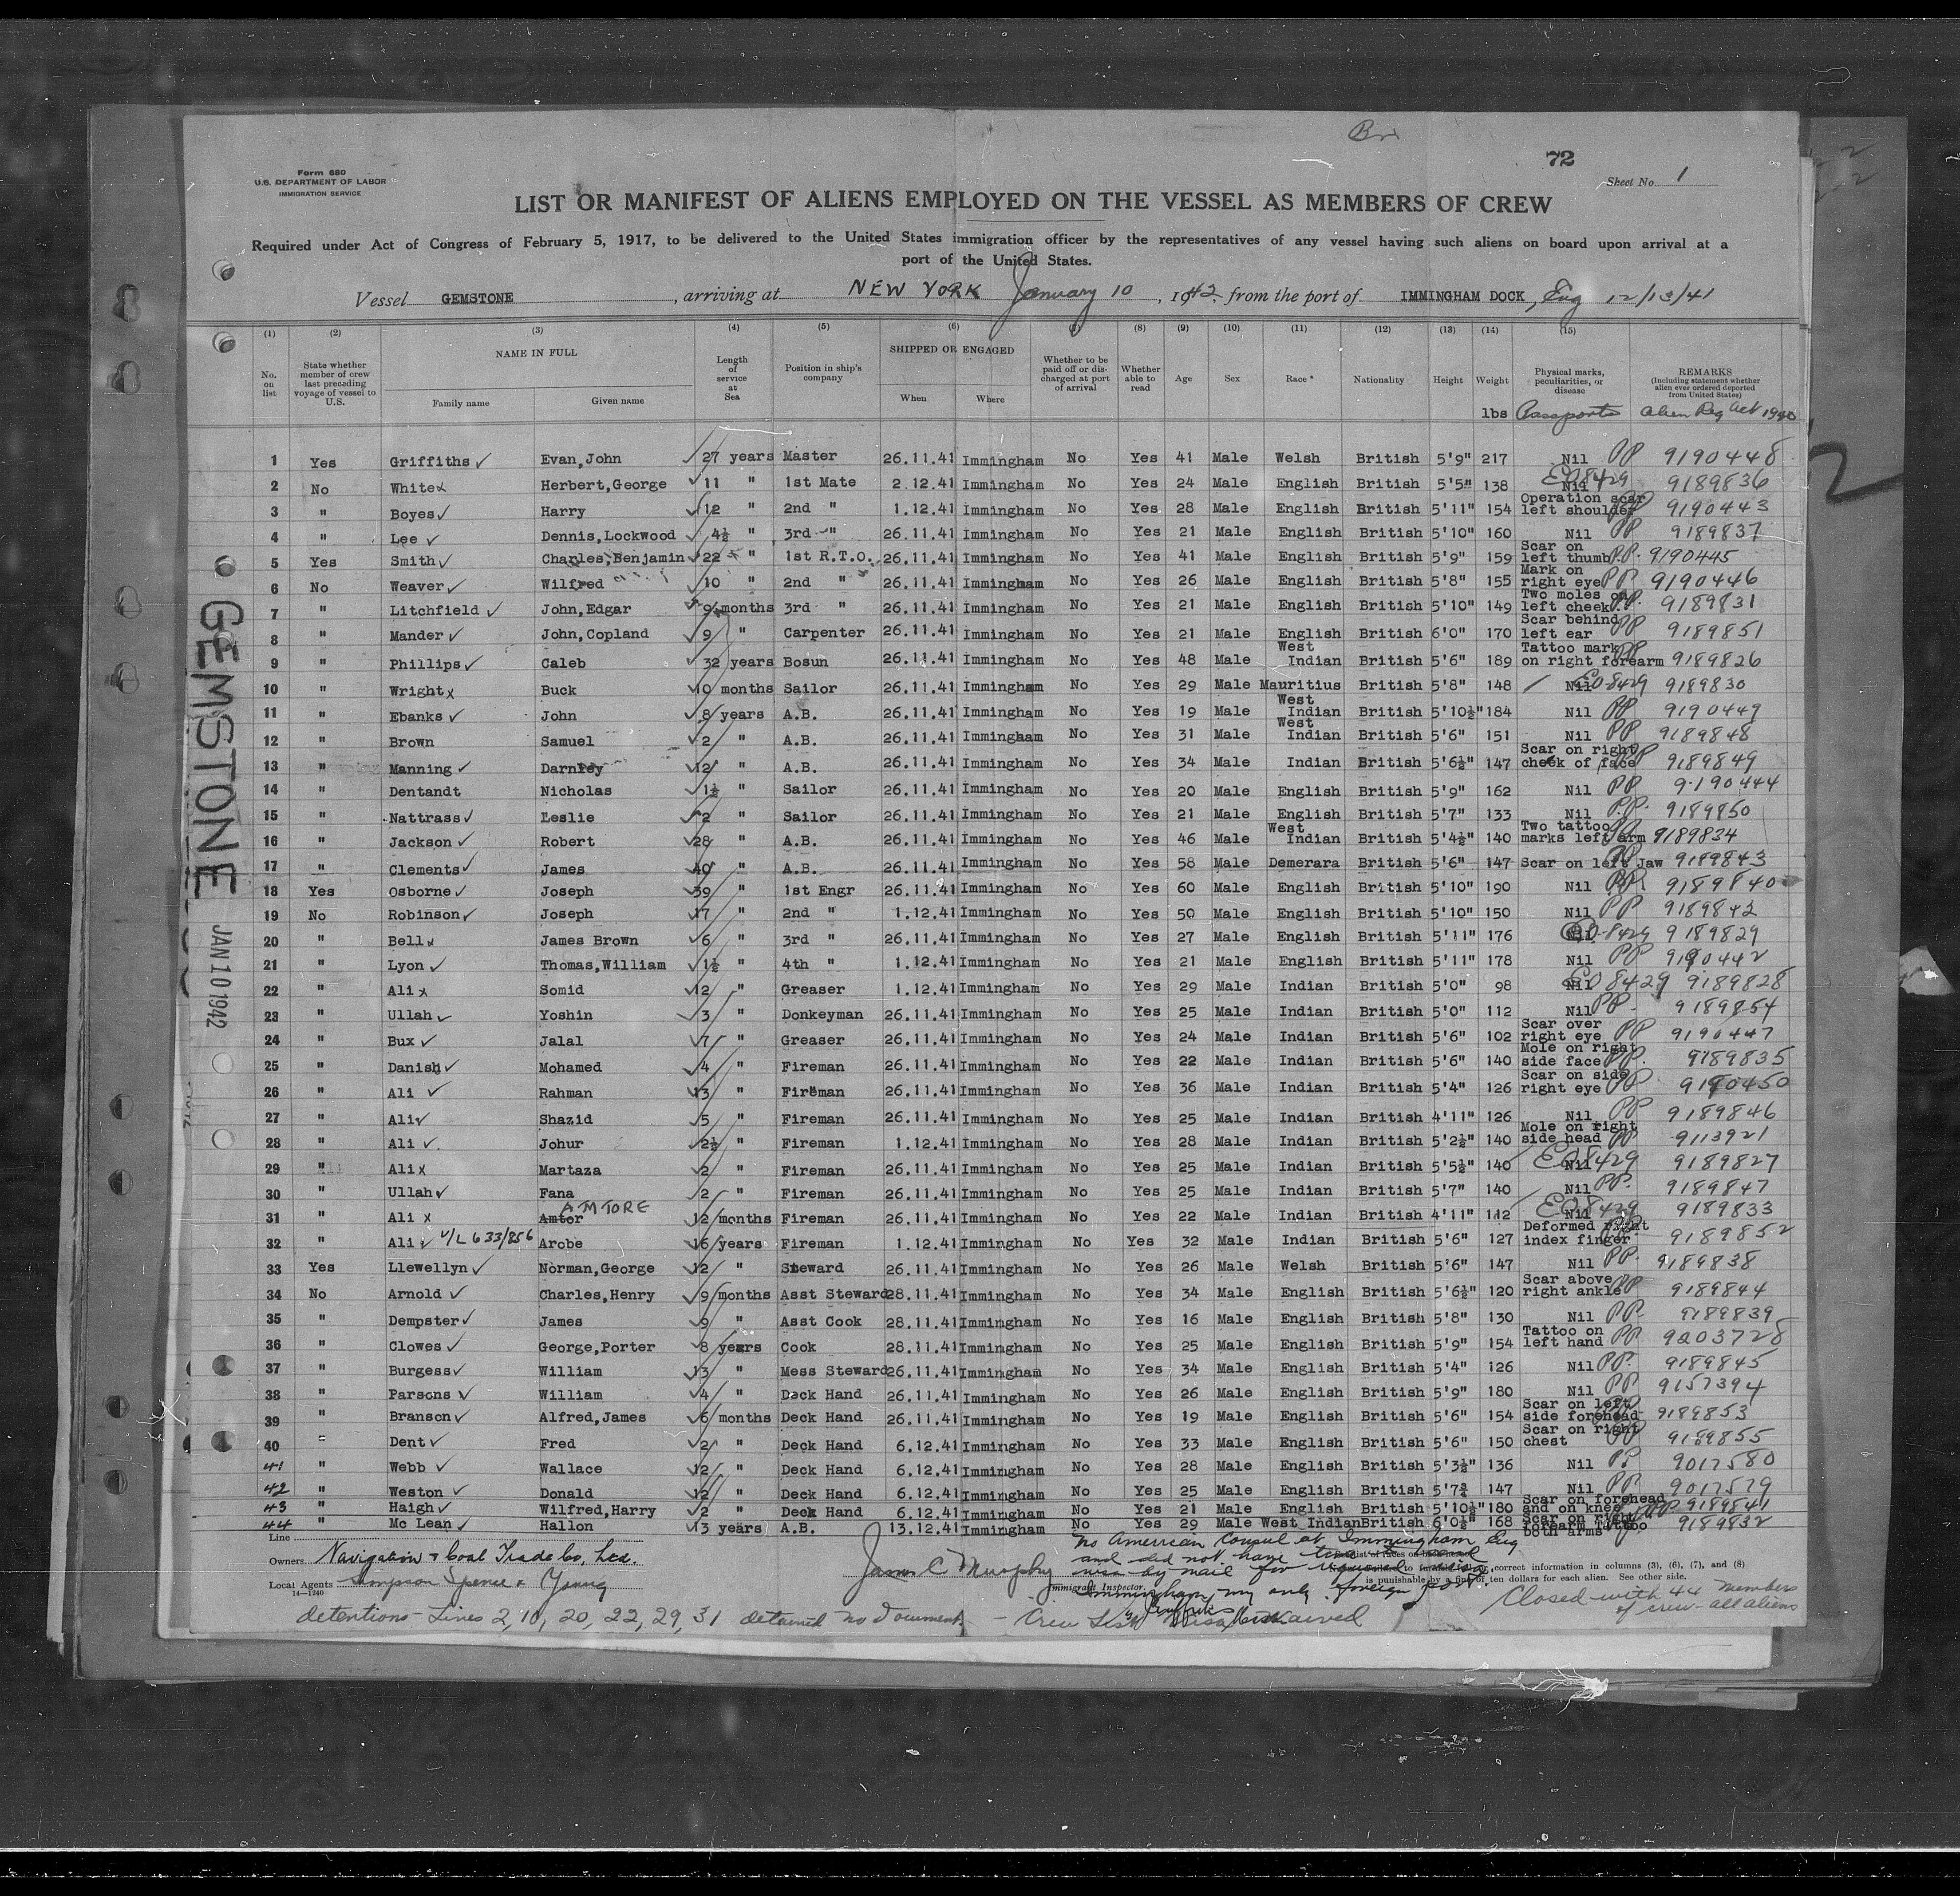 Bri
72
Form 680
U.S. DEPARTMENT OF LABOR
IMMIGRATION SERVICE
Sheet No. 1
LIST OR MANIFEST OF ALIENS EMPLOYED ON THE VESSEL AS MEMBERS OF CREW
Required under Act of Congress of February 5, 1917, to be delivered to the United States immigration officer by the representatives of any vessel having such aliens on board upon arrival at a
port of the United States.
Vessel GEMSTONE, arriving at NEW YORK January 10, 1942 from the port of IMMINGHAM DOCK, Eng 12/13/41
(1) (2) (3) (4) (5) (6) (7) (8) (9) (10) (11) (12) (13) (14) (15)
No. on list State whether member of crew last preceding voyage of vessel to U.S. NAME IN FULL Family name Given name Length of service at Sea Position in ship's company SHIPPED OR ENGAGED When Where Whether to be paid off or discharged at port of arrival Whether able to read Age Sex Race * Nationality Height Weight lbs Physical marks, peculiarities, or disease Passports REMARKS (Including statement whether alien ever ordered deported from United States) Alien Reg Act 1940
1 Yes Griffiths Evan,John 27 years Master 26.11.41 Immingham No Yes 41 Male Welsh British 5'9" 217 Nil PP 9190448
2 No White Herbert,George 11 " 1st Mate 2.12.41 Immingham No Yes 24 Male English British 5'5" 138 Nil EO8429 9189836
3 " Boyes Harry 12 " 2nd " 1.12.41 Immingham No Yes 28 Male English British 5'11" 154 Operation scar left shoulder PP 9190443
4 " Lee Dennis,Lockwood 4½ " 3rd " 26.11.41 Immingham No Yes 21 Male English British 5'10" 160 Nil PP 9189837
5 Yes Smith Charles,Benjamin 22 " 1st R.T.O. 26.11.41 Immingham No Yes 41 Male English British 5'9" 159 Scar on left thumb P.P. 9190445
6 No Weaver Wilfred 10 " 2nd " 26.11.41 Immingham No Yes 26 Male English British 5'8" 155 Mark on right eye PP 9190446
7 " Litchfield John,Edgar 9 months 3rd " 26.11.41 Immingham No Yes 21 Male English British 5'10" 149 Two moles on left cheek PP. 9189831
8 " Mander John,Copland 9 " Carpenter 26.11.41 Immingham No Yes 21 Male English British 6'0" 170 Scar behind left ear PP 9189851
9 " Phillips Caleb 32 years Bosun 26.11.41 Immingham No Yes 48 Male West Indian British 5'6" 189 Tattoo mark on right forearm PP 9189826
10 " Wright Buck 10 months Sailor 26.11.41 Immingham No Yes 29 Male Mauritius British 5'8" 148 Nil EO8429 9189830
11 " Ebanks John 8 years A.B. 26.11.41 Immingham No Yes 19 Male West Indian British 5'10½" 184 Nil PP 9190449
12 " Brown Samuel 2 " A.B. 26.11.41 Immingham No Yes 31 Male West Indian British 5'6" 151 Nil PP 9189848
13 " Manning Darnley 12 " A.B. 26.11.41 Immingham No Yes 34 Male Indian British 5'6½" 147 Scar on right cheek of face PP 9189849
14 " Dentandt Nicholas 1½ " Sailor 26.11.41 Immingham No Yes 20 Male English British 5'9" 162 Nil PP 9190444
15 " Nattrass Leslie 2 " Sailor 26.11.41 Immingham No Yes 21 Male English British 5'7" 133 Nil P.P. 9189850
16 " Jackson Robert 28 " A.B. 26.11.41 Immingham No Yes 46 Male West Indian British 5'4½" 140 Two tattoo marks left arm PP 9189834
17 " Clements James 40 " A.B. 26.11.41 Immingham No Yes 58 Male Demerara British 5'6" 147 Scar on left Jaw PP 9189843
18 Yes Osborne Joseph 39 " 1st Engr 26.11.41 Immingham No Yes 60 Male English British 5'10" 190 Nil PP. 9189840
19 No Robinson Joseph 17 " 2nd " 1.12.41 Immingham No Yes 50 Male English British 5'10" 150 Nil PP 9189842
20 " Bell James Brown 6 " 3rd " 26.11.41 Immingham No Yes 27 Male English British 5'11" 176 Nil EO8429 9189829
21 " Lyon Thomas,William 1½ " 4th " 1.12.41 Immingham No Yes 21 Male English British 5'11" 178 Nil PP 9190442
22 " Ali Somid 12 " Greaser 1.12.41 Immingham No Yes 29 Male Indian British 5'0" 98 Nil EO8429 9189828
23 " Ullah Yoshin 3 " Donkeyman 26.11.41 Immingham No Yes 25 Male Indian British 5'0" 112 Nil PP. 9189854
24 " Bux Jalal 7 " Greaser 26.11.41 Immingham No Yes 24 Male Indian British 5'6" 102 Scar over right eye PP 9190447
25 " Danish Mohamed 4 " Fireman 26.11.41 Immingham No Yes 22 Male Indian British 5'6" 140 Mole on right side face PP. 9189835
26 " Ali Rahman 13 " Fireman 26.11.41 Immingham No Yes 36 Male Indian British 5'4" 126 Scar on side right eye PP 9190450
27 " Ali Shazid 5 " Fireman 26.11.41 Immingham No Yes 25 Male Indian British 4'11" 126 Nil PP 9189846
28 " Ali Johur 2½ " Fireman 1.12.41 Immingham No Yes 28 Male Indian British 5'2½" 140 Mole on right side head PP 9113921
29 " Ali Martaza 2 " Fireman 26.11.41 Immingham No Yes 25 Male Indian British 5'5½" 140 Nil EO8429 9189827
30 " Ullah Fana 2 " Fireman 26.11.41 Immingham No Yes 25 Male Indian British 5'7" 140 Nil PP. 9189847
31 " Ali Amtor AMTORE 12 months Fireman 26.11.41 Immingham No Yes 22 Male Indian British 4'11" 112 Nil EO8429 9189833
32 " Ali V/L 633/856 Arobe 16 years Fireman 1.12.41 Immingham No Yes 32 Male Indian British 5'6" 127 Deformed right index finger PP. 9189852
33 Yes Llewellyn Norman,George 12 " Steward 26.11.41 Immingham No Yes 26 Male Welsh British 5'6" 147 Nil PP. 9189838
34 No Arnold Charles,Henry 9 months Asst Steward 28.11.41 Immingham No Yes 34 Male English British 5'6½" 120 Scar above right ankle PP 9189844
35 " Dempster James 9 " Asst Cook 28.11.41 Immingham No Yes 16 Male English British 5'8" 130 Nil PP. 9189839
36 " Clowes George,Porter 8 years Cook 28.11.41 Immingham No Yes 25 Male English British 5'9" 154 Tattoo on left hand PP 9203728
37 " Burgess William 13 " Mess Steward 26.11.41 Immingham No Yes 34 Male English British 5'4" 126 Nil PP. 9189845
38 " Parsons William 4 " Deck Hand 26.11.41 Immingham No Yes 26 Male English British 5'9" 180 Nil PP 9157394
39 " Branson Alfred,James 6 months Deck Hand 26.11.41 Immingham No Yes 19 Male English British 5'6" 154 Scar on left side forehead PP 9189853
40 " Dent Fred 2 " Deck Hand 6.12.41 Immingham No Yes 33 Male English British 5'6" 150 Scar on right chest PP 9189855
41 " Webb Wallace 12 " Deck Hand 6.12.41 Immingham No Yes 28 Male English British 5'3½" 136 Nil PP 9017580
42 " Weston Donald 12 " Deck Hand 6.12.41 Immingham No Yes 25 Male English British 5'7¾" 147 Nil PP. 9017579
43 " Haigh Wilfred,Harry 2 " Deck Hand 6.12.41 Immingham No Yes 21 Male English British 5'10½" 180 Scar on forehead and on knee PP 9189841
44 " Mc Lean Hallon 13 years A.B. 13.12.41 Immingham No Yes 29 Male West Indian British 6'0½" 168 Scar on right forearm Tattoo both arms PP 9189832
Line
Owners Navigation & Coal Trade Co, Ltd.
Local Agents Simpson Spence & Young
14—1240
James C Murphy
Immigrant Inspector.
No American Consul at Immingham Eng
and did not have time to send
visa by mail for
Immingham my only foreign port.
correct information in columns (3), (6), (7), and (8)
is punishable by a fine of ten dollars for each alien. See other side.
Closed with 44 members
of crew - all aliens
detentions - Lines 2, 10, 20, 22, 29, 31 detained no document. - Crew List Visa Waived
GEMSTONE
JAN 10 1942